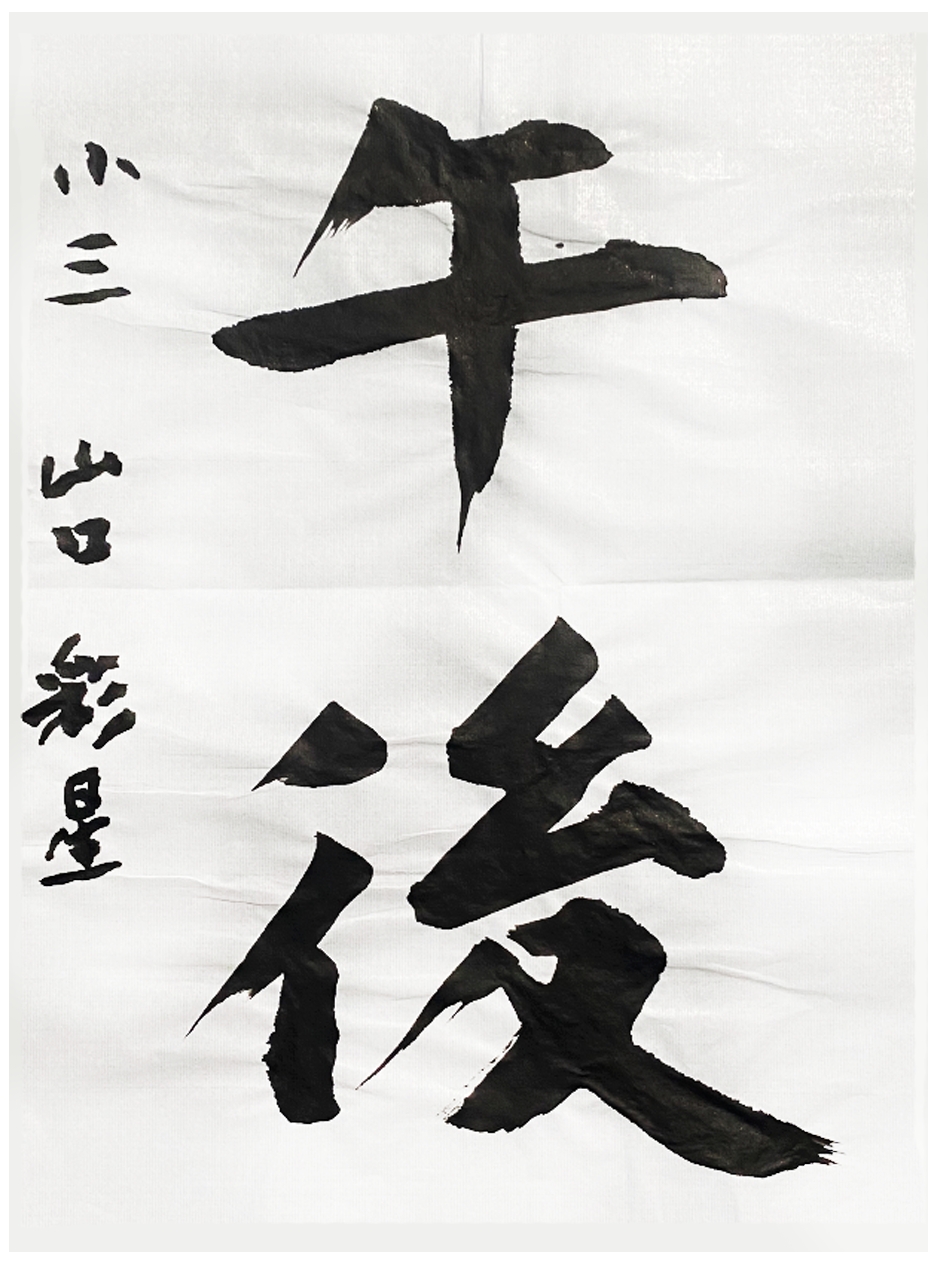 午後
小三 山口 彩星